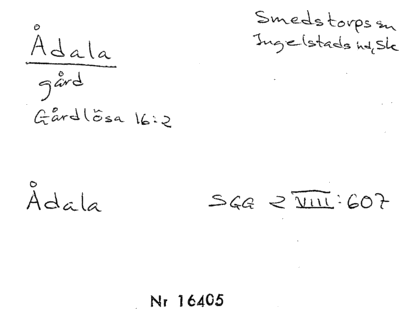 Ådala
gård
Gårdlösa 16:2
Smedstorps sn
Ingelstads hd, Sk
Ådala
SGG 2 VIII:607
Nr 16405